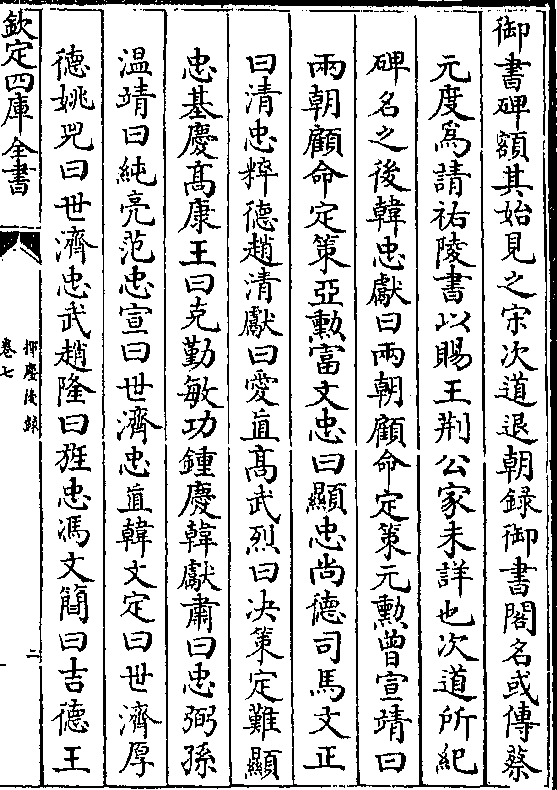 御書碑額其始見之宋次道退朝録御書閣名或傳蔡
元度爲請祐陵書以賜王荆公家未詳也次道所紀
碑名之後韓忠獻曰兩朝顧命定策元勲曾宣靖曰
兩朝顧命定策亞勲富文忠曰顯忠尚德司馬文正
曰清忠粹德趙清獻曰愛直髙武烈曰决策定難顯
忠基慶髙康王曰克勤敏功鍾慶韓獻肅曰忠弼孫
温靖曰純亮范忠宣曰世濟忠直韓文定曰世濟厚
德姚兕曰世濟忠武趙隆曰旌忠馮文簡曰吉德王
欽定四庫全書
揮麈後録
卷七
二